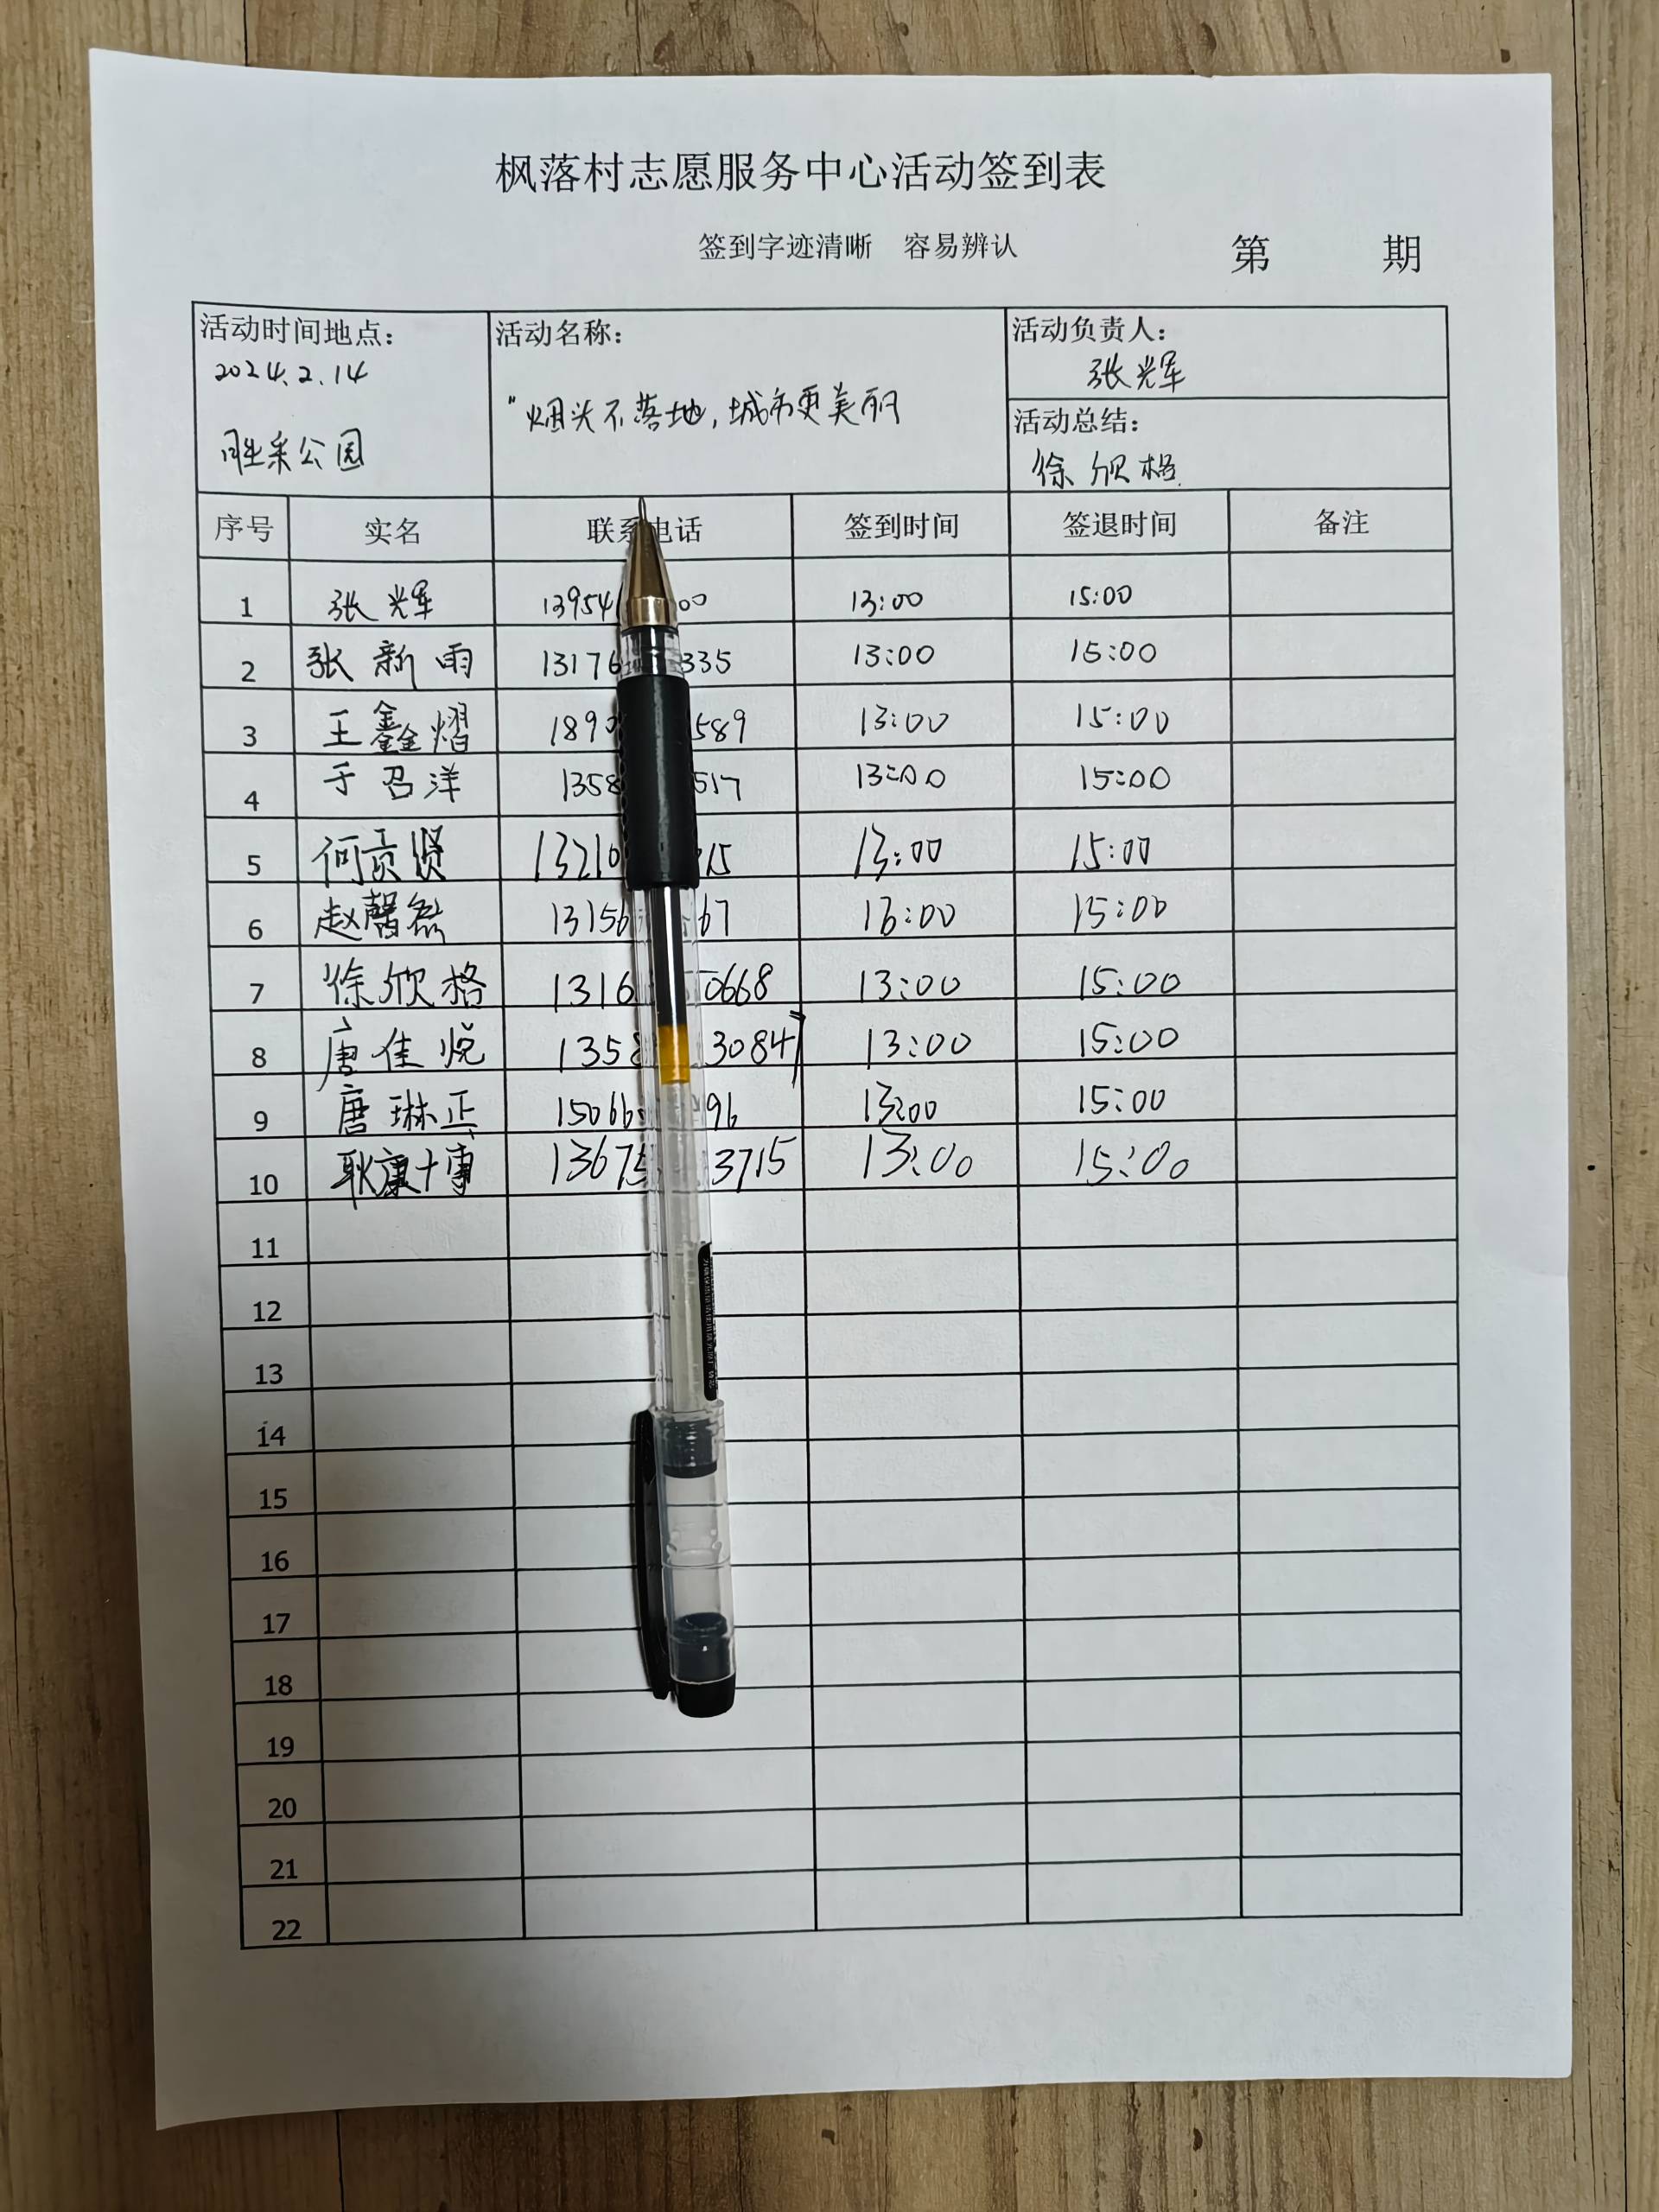 枫落村志愿服务中心活动签到表
签到字迹清晰 容易辨认 第 期
活动时间地点： 活动名称： 活动负责人：
2024.2.14 张辉
"烟头不落地,城市更美丽
活动总结：
胜采公园 徐欣格
序号 实名 联系电话 签到时间 签退时间 备注
1 张辉 13954 00 13:00 15:00
2 张新雨 13176 335 13:00 15:00
3 王鑫熠 1890 589 13:00 15:00
4 于召洋 1358 517 13:00 15:00
5 何贡贤 13210 15 13:00 15:00
6 赵馨磊 13156 67 13:00 15:00
7 徐欣格 1316 0668 13:00 15:00
8 唐佳悦 1358 3084 13:00 15:00
9 唐琳正 15066 96 13:00 15:00
10 耿康博 13675 3715 13:00 15:00
11
12
13
14
15
16
17
18
19
20
21
22